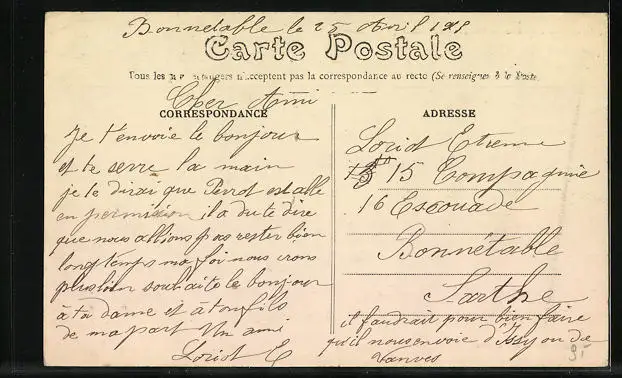 Bonnetable le 25 Avril 191
Carte Postale
Tous les étrangers n'acceptent pas la correspondance au recto (Se renseigner à la Poste
Cher Ami
CORRESPONDANCE
Je t'envoie le bonjour
et te serre la main
je te dirai que Perrot est allé
en permission il a du te dire
que nous allions pas rester bien
longtemps ma foi nous irons
plus loin souhaite le bonjour
à ta dame et à ton fils
de ma part Un ami
Loriot E
ADRESSE
Loriot Etienne
15 Compagnie
16 Escouade
Bonnétable
Sarthe
il faudrait pour bien faire
qu'il nous envoie d'Issy ou de
Vanves